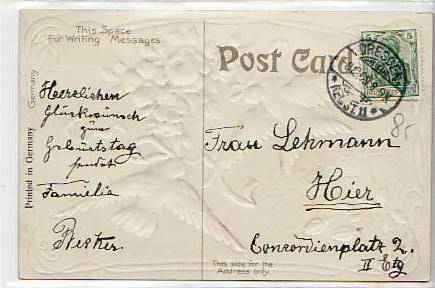 This Space
For Writing Messages
Post Card
Printed in Germany
Germany
5 5
DRESDEN
Herzlichen
Glückwunsch
zum
Geburtstag
sendet
Familie
Becker.
Frau Lehmann
Hier
Concordienplatz 2.
II Etg
This side for the
Address only.
8,-